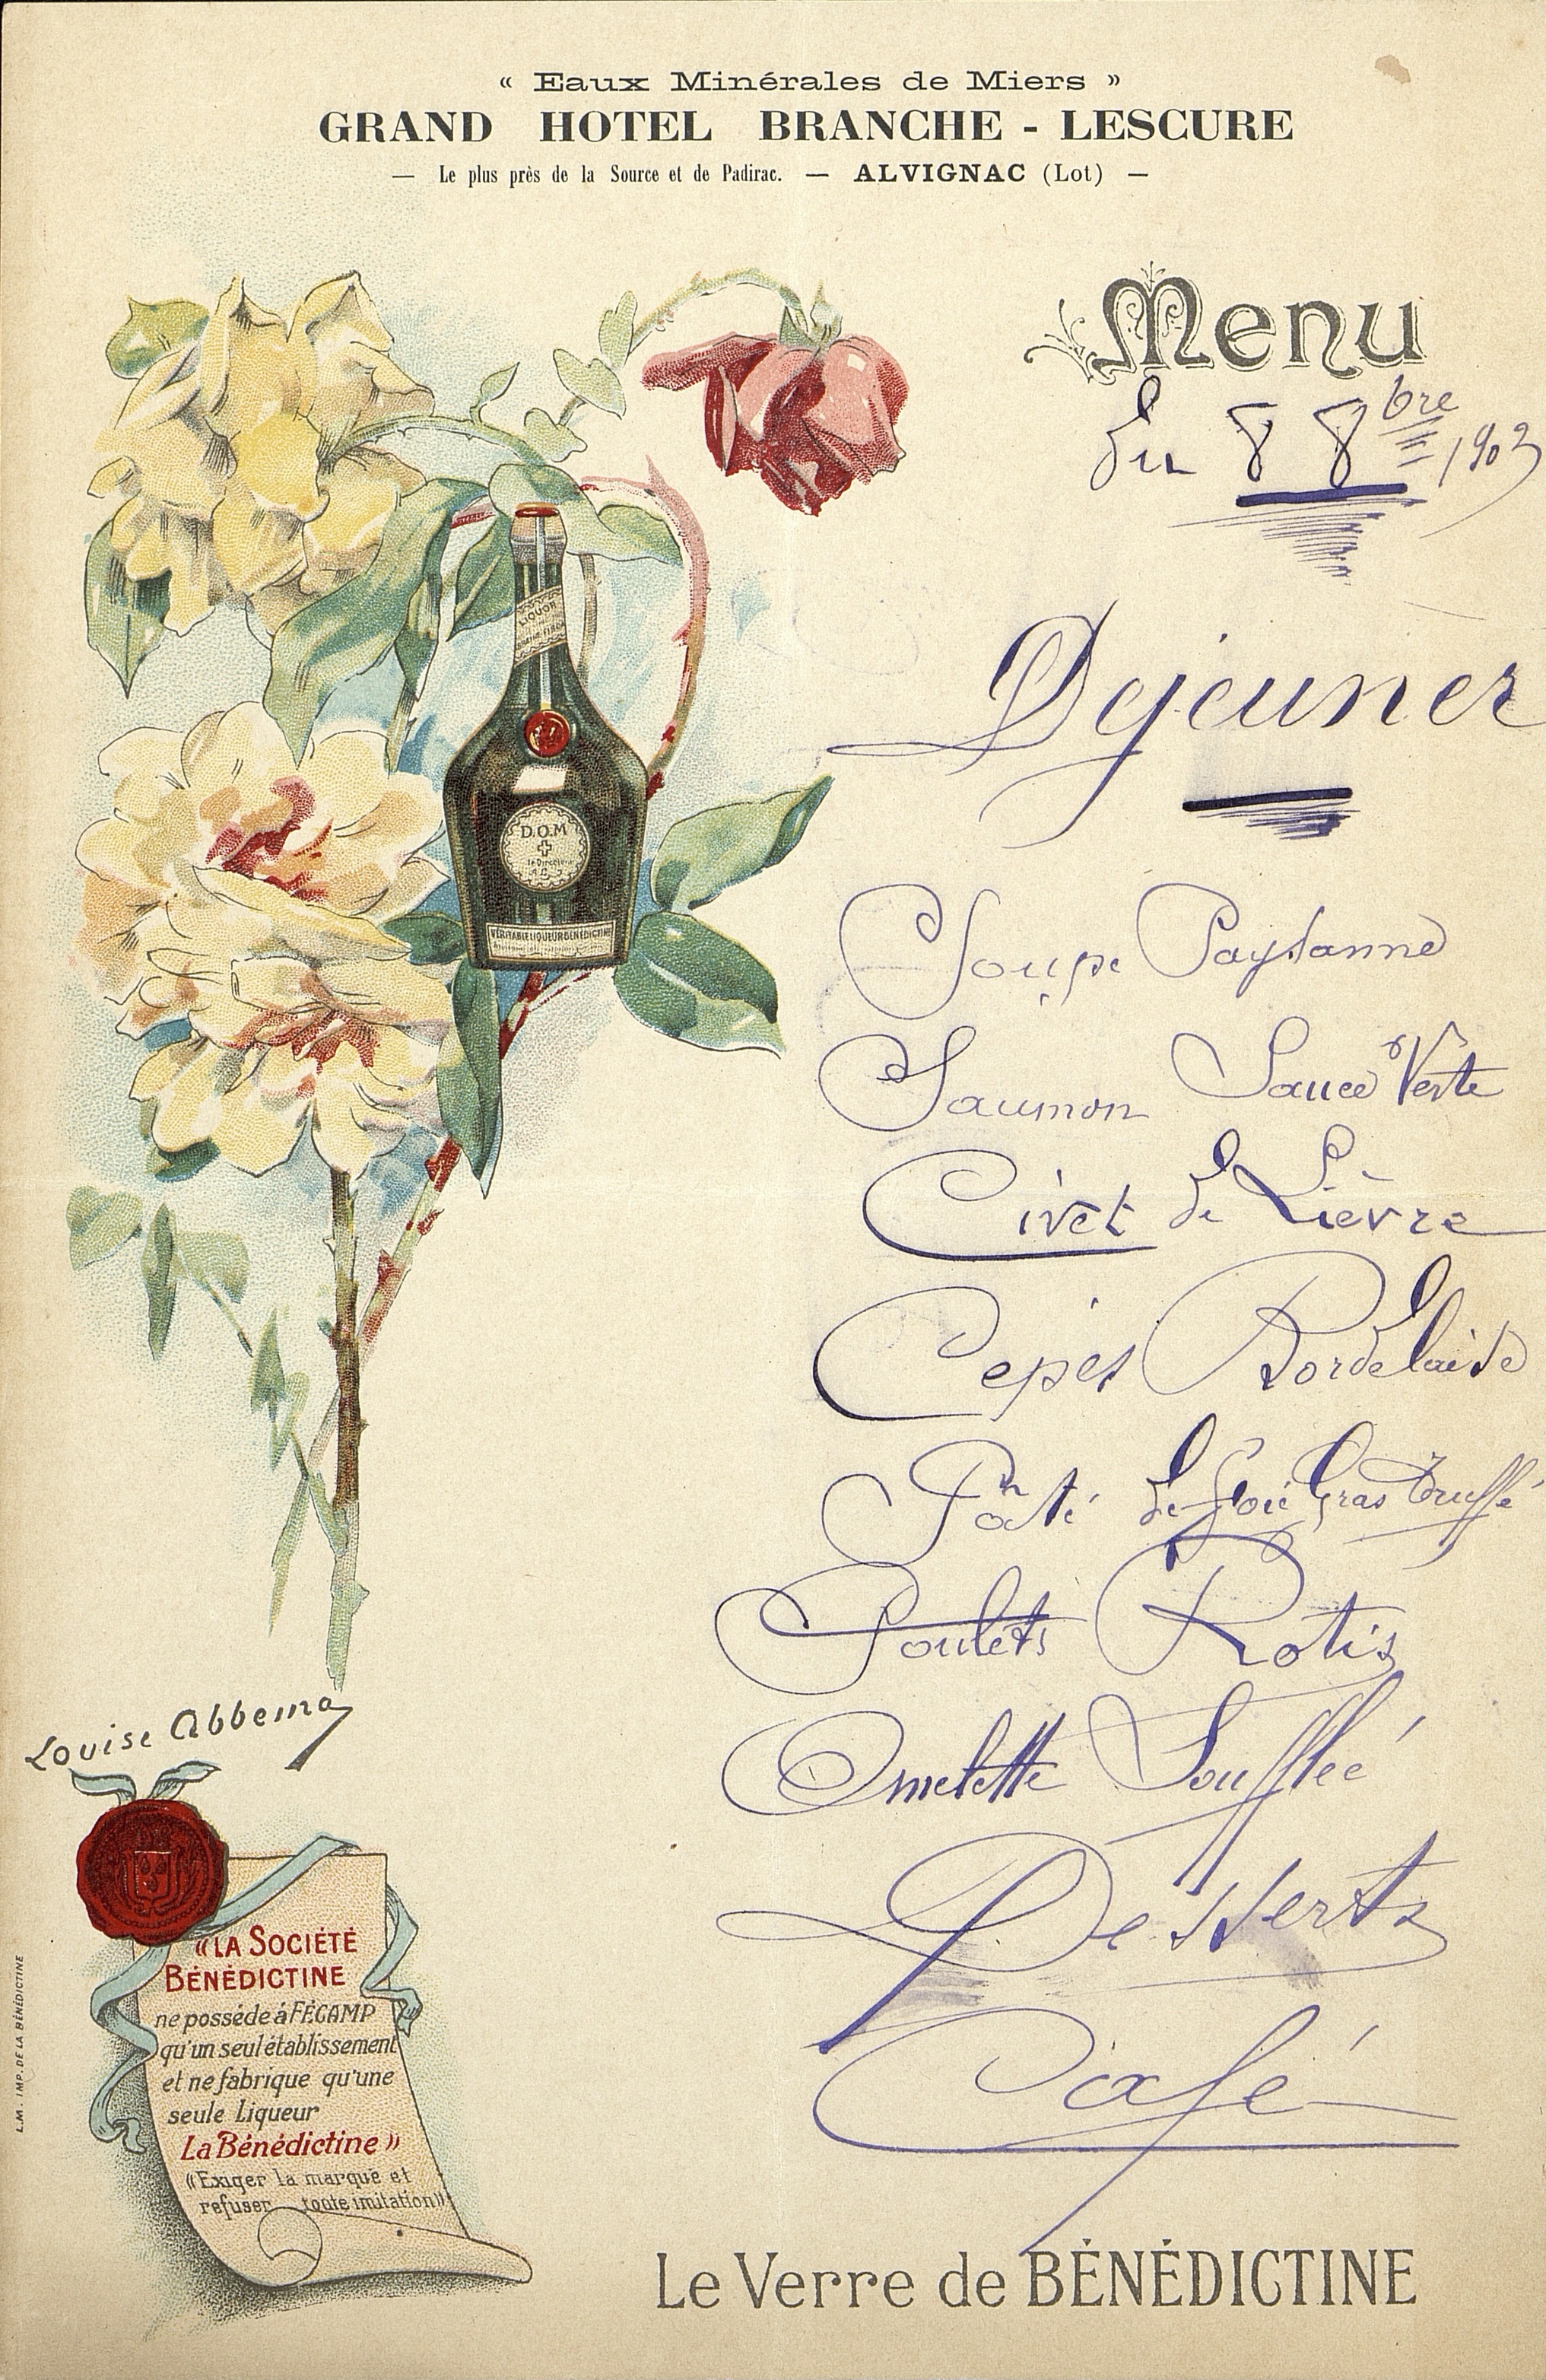 « Eaux Minérales de Miers »
GRAND HOTEL BRANCHE - LESCURE
— Le plus près de la Source et de Padirac. — ALVIGNAC (Lot) —
Menu
du 8 8bre 1903
Déjeuner
Soupe Paysanne
Saumon Sauce Verte
Civet de Lièvre
Cepes Bordelaise
Pâté de foie Gras Truffé
Poulets Rotis
Omelette Soufflée
Desserts
Café
Le Verre de BÉNÉDICTINE
LIQUOR
D.O.M
VÉRITABLE LIQUEUR BÉNÉDICTINE
Louise Abbema
«LA SOCIÉTÉ
BÉNÉDICTINE
ne posséde á FÉCAMP
qu'un seul établissement
et ne fabrique qu'une
seule Liqueur
La Bénédictine»
«Exiger la marque et
refuser toute imitation»
L.M. IMP. DE LA BÉNÉDICTINE